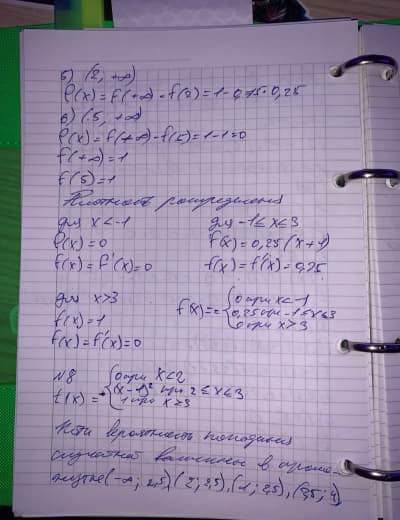 б) (2, +∞)
P(x) = F(+∞) - F(2) = 1 - 0,75 = 0,25
в) (5, +∞)
P(x) = F(+∞) - F(5) = 1 - 1 = 0
F(+∞) = 1
F(5) = 1
Плотность распределения
для x < -1 для -1 ≤ x ≤ 3
P(x) = 0 F(x) = 0,25 (x + 1)
f(x) = F'(x) = 0 f(x) = F'(x) = 0,25
для x > 3
F(x) = 1
f(x) = F'(x) = 0
f(x) = {0 при x < -1
0,25 при -1 ≤ x ≤ 3
0 при x > 3
№8
F(x) = {0 при x < 2
(x - 2)² при 2 ≤ x ≤ 3
1 при x ≥ 3
Найти вероятность попадания
случайной величины в проме-
жутке (-∞; 2,5), (2; 2,5), (1; 2,5), (2,5; 4)